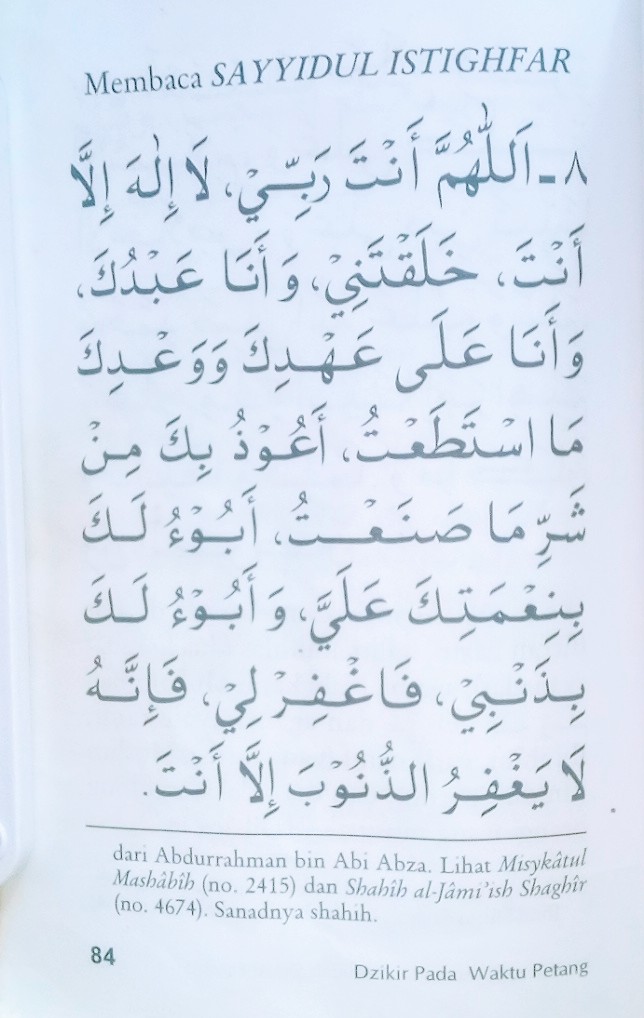 Membaca SAYYIDUL ISTIGHFAR
٨ـ اَللّٰهُمَّ أَنْتَ رَبِّـيْ، لَا إِلٰهَ إِلَّا
أَنْتَ، خَلَقْتَنِيْ، وَأَنَا عَبْدُكَ،
وَأَنَا عَلَى عَـهْـدِكَ وَوَعْـدِكَ
مَا اسْـتَـطَـعْـتُ، أَعُـوْذُ بِكَ مِـنْ
شَـرِّ مَا صَـنَـعْـتُ، أَبُـوْءُ لَـكَ
بِـنِـعْـمَـتِـكَ عَلَيَّ، وَأَبُـوْءُ لَـكَ
بِـذَنْـبِيْ، فَـاغْـفِـرْ لِيْ، فَـإِنَّـهُ
لَا يَـغْـفِـرُ الـذُّنُـوْبَ إِلَّا أَنْـتَ.
dari Abdurrahman bin Abi Abza. Lihat Misykâtul
Mashâbîh (no. 2415) dan Shahîh al-Jâmi'ish Shaghîr
(no. 4674). Sanadnya shahih.
84
Dzikir Pada Waktu Petang